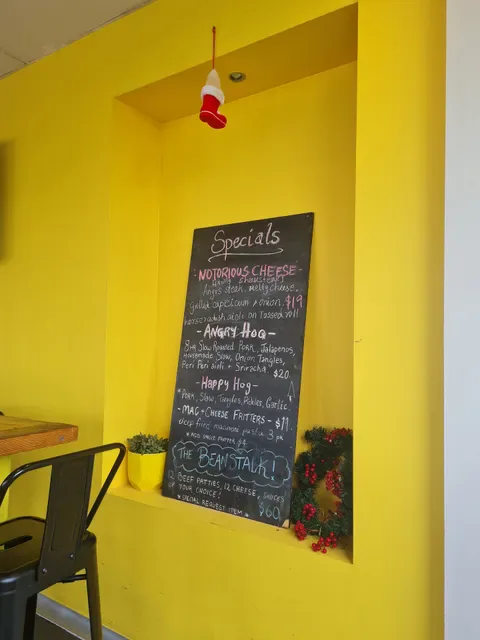 Specials
- NOTORIOUS CHEESE -
Angus steak, melty cheese,
Grilled capsicum + onion. $19
horseradish aioli on Toasted roll
- ANGRY HOG -
8hr Slow Roasted Pork, Jalapenos,
Housemade Slaw, Onion Tangles,
Peri Peri aioli + Sriracha $20
- Happy Hog -
PORK, Slaw, Tangles, Pickles, Garlic
- MAC + CHEESE FRITTERS - $11
Deep fried macaroni pasta 3 pk
* ADD $4
THE BEANSTALK!
12 BEEF PATTIES, 12 CHEESE, SAUCES
OF YOUR CHOICE! $60
* SPECIAL REQUEST ITEM *